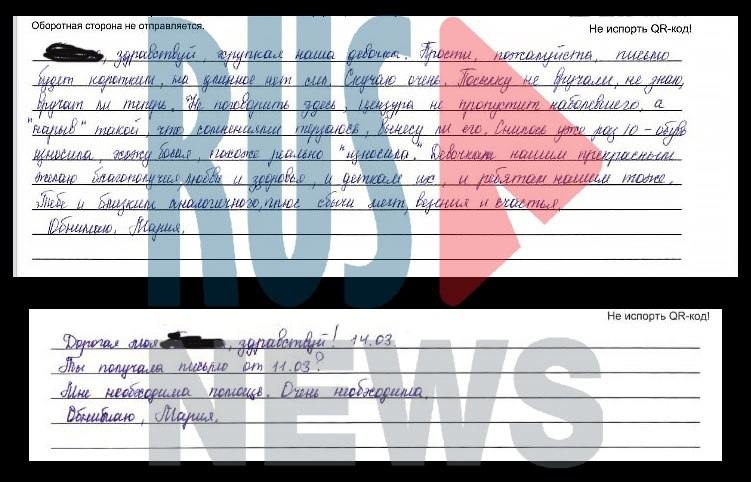 Оборотная сторона не отправляется.
Не испорть QR-код!
, здравствуй, хрупкая наша девочка. Прости, пожалуйста, письмо
будет коротким, на длинное нет сил. Скучаю очень. Посылку не вручали, не знаю,
вручат ли теперь. Не поговорить здесь, цензура не пропустит наболевшего, а
"нарыв" такой, что сомнениями терзаюсь, вынесу ли его. Снилось уже раз 10 - обувь
износила, хожу босая, похоже реально "износила". Девочкам нашим прекрасным
желаю благополучия любви и здоровья, и деткам их, и ребятам нашим тоже.
Тебе и близким аналогичного, плюс сбычи мечт, везения и счастья.
Обнимаю, Мария.
Не испорть QR-код!
Дорогая моя , здравствуй! 14.03.
Ты получала письмо от 11.03?
Мне необходима помощь. Очень необходима.
Обнимаю, Мария.
RUS
NEWS